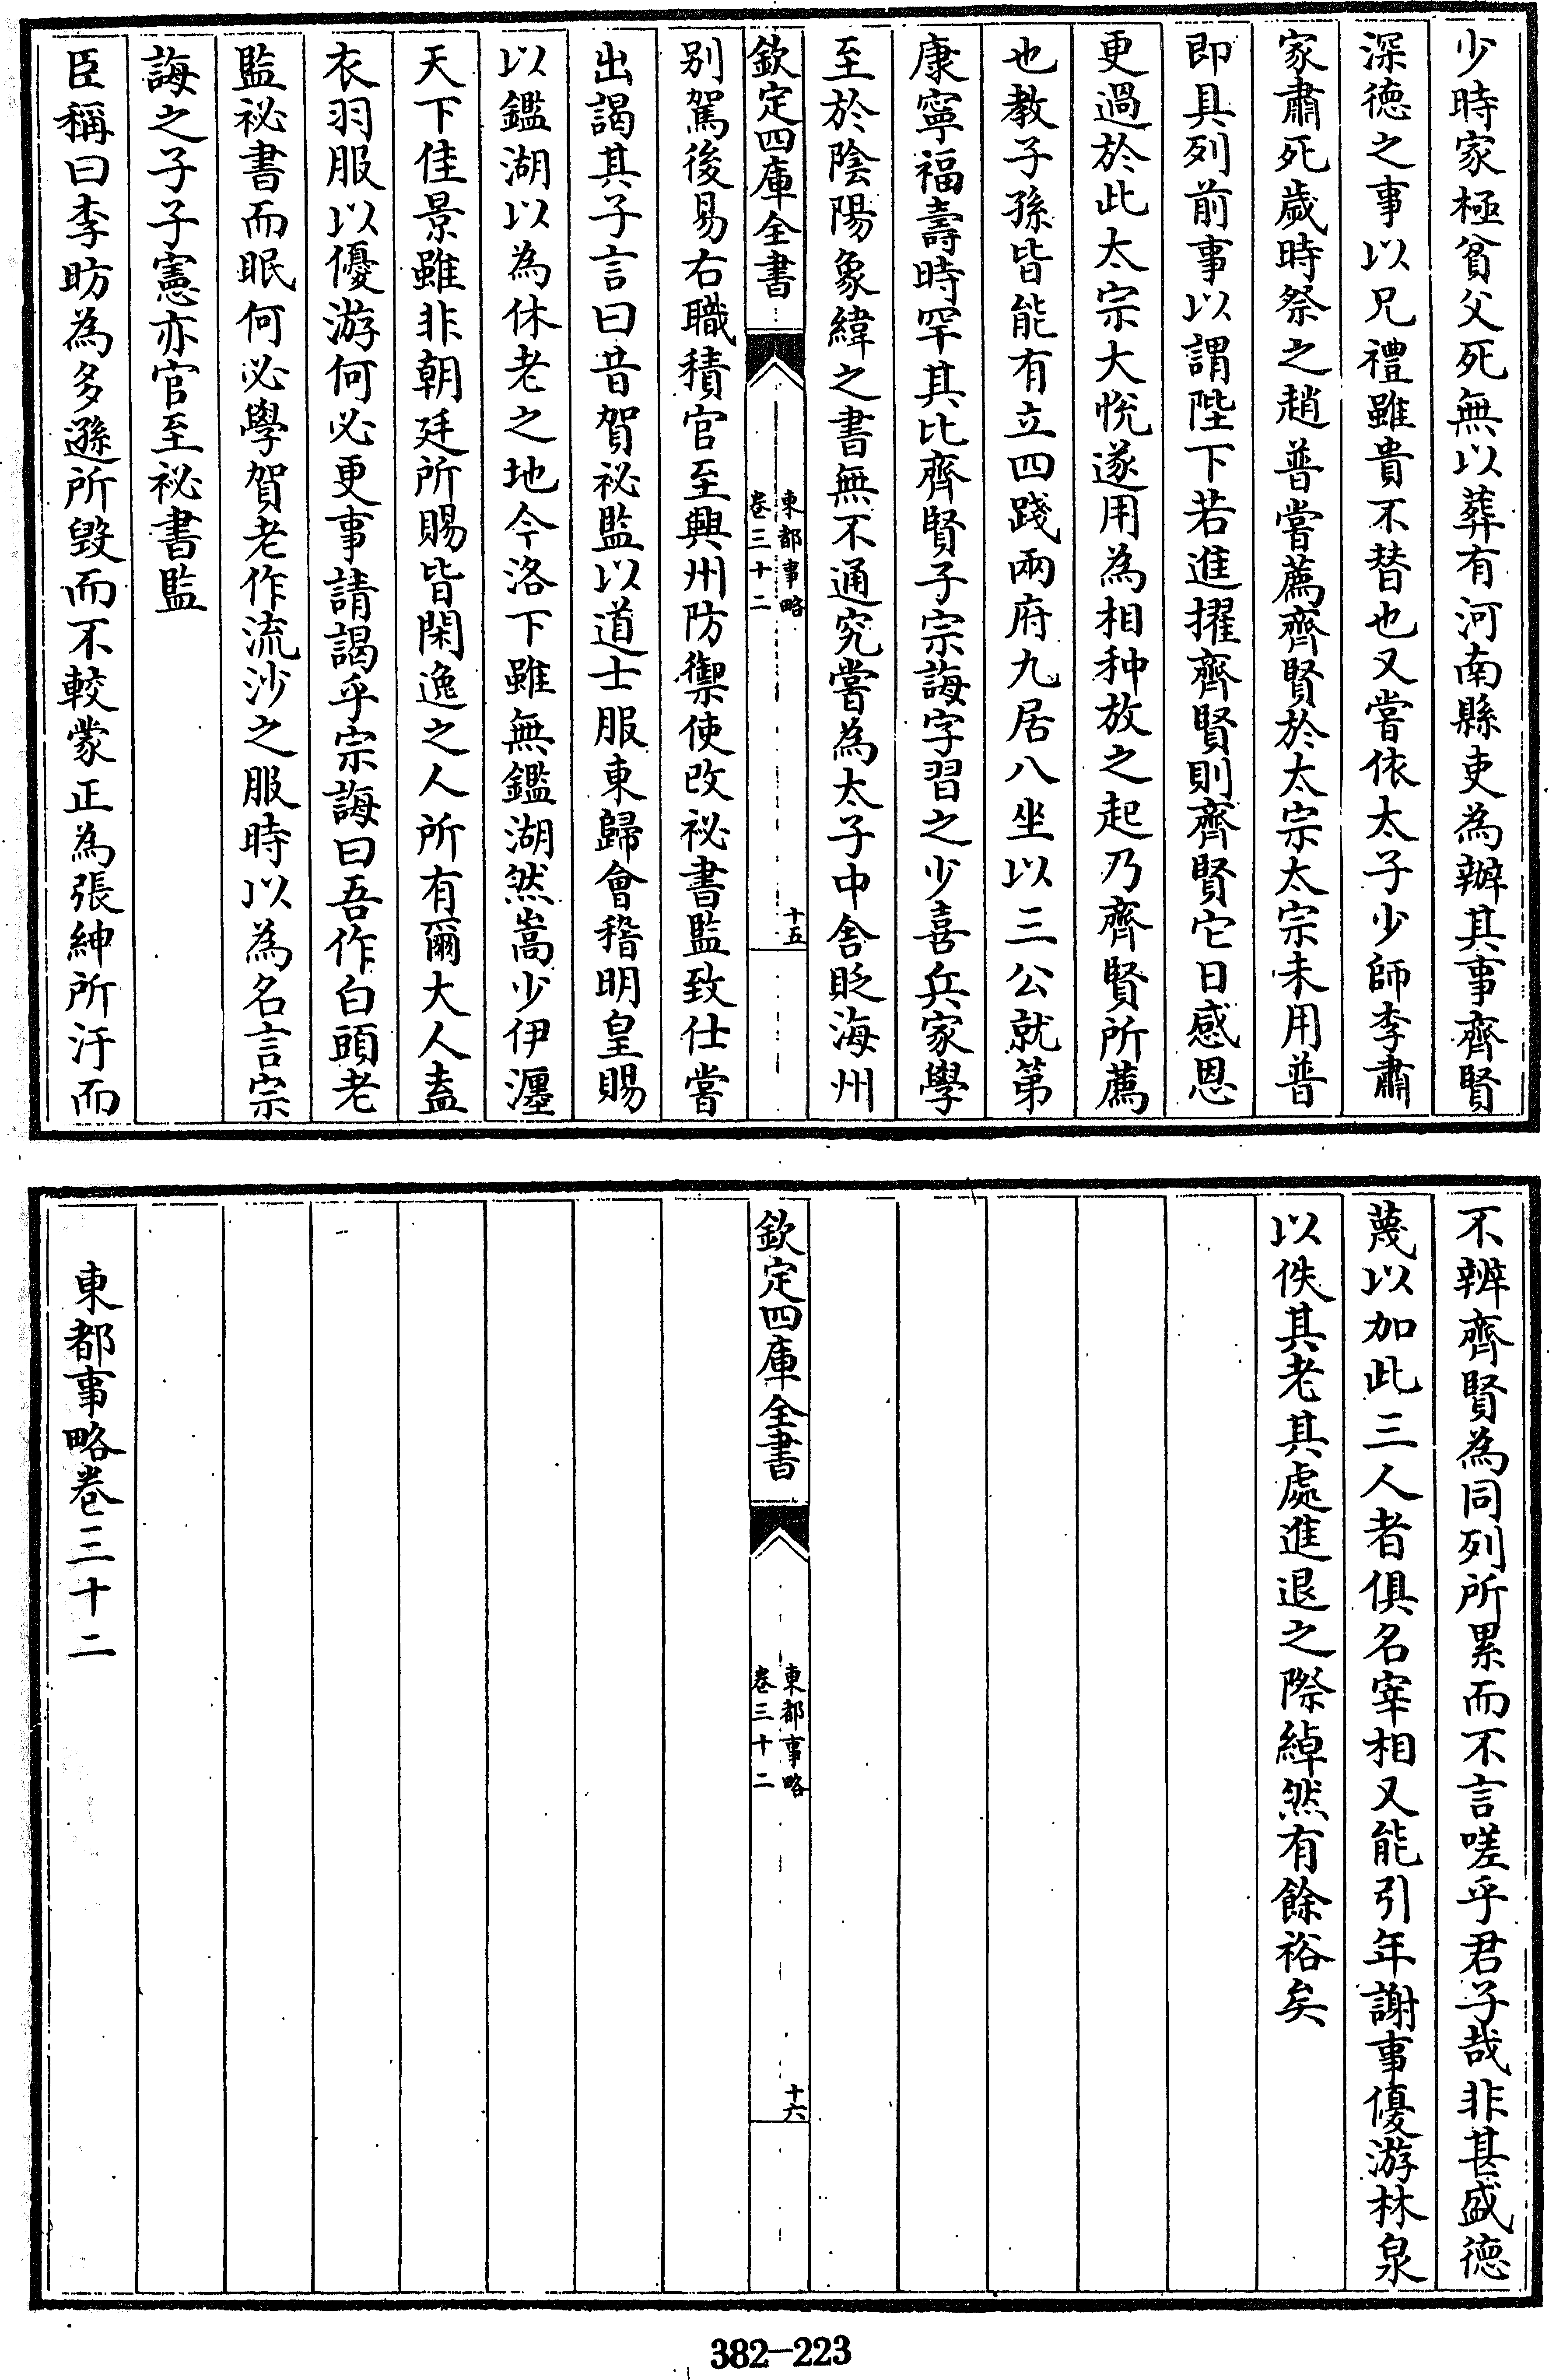 少時家極貧父死無以葬有河南縣吏為辦其事齊賢
深德之事以兄禮雖貴不替也又嘗依太子少師李肅
家肅死歲時祭之趙普嘗薦齊賢於太宗太宗未用普
即具列前事以謂陛下若進擢齊賢則齊賢它日感恩
更過於此太宗大悅遂用為相种放之起乃齊賢所薦
也教子孫皆能有立四踐兩府九居八坐以三公就第
康寧福壽時罕其比齊賢子宗誨字習之少喜兵家學
至於陰陽象緯之書無不通究嘗為太子中舍貶海州
欽定四庫全書
東都事略
卷三十二
十五
别駕後易右職積官至興州防禦使改祕書監致仕嘗
出謁其子言曰昔賀祕監以道士服東歸會稽明皇賜
以鑑湖以為休老之地今洛下雖無鑑湖然嵩少伊瀍
天下佳景雖非朝廷所賜皆閑逸之人所有爾大人盍
衣羽服以優游何必更事請謁乎宗誨曰吾作白頭老
監祕書而眠何必學賀老作流沙之服時以為名言宗
誨之子子憲亦官至祕書監
臣稱曰李昉為多遜所毀而不較蒙正為張紳所汙而
不辨齊賢為同列所累而不言嗟乎君子哉非甚盛德
蔑以加此三人者俱名宰相又能引年謝事優游林泉
以佚其老其處進退之際綽然有餘裕矣
欽定四庫全書
東都事略
卷三十二
十六
東都事略卷三十二
382-223